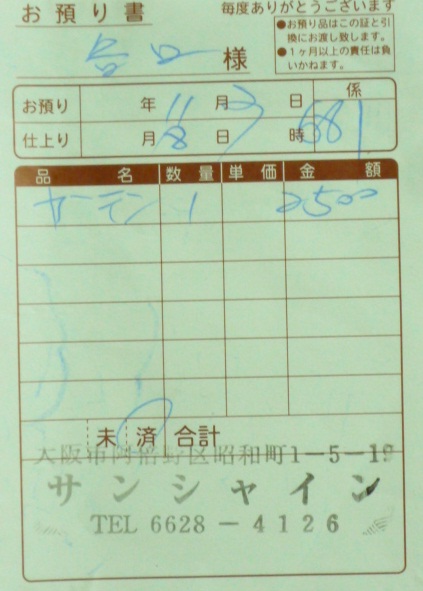 お預り書
毎度ありがとうございます
●お預り品はこの証と引
換にお渡し致します。
●1ヶ月以上の責任は負
いかねます。
様
お預り 年 11 月 3 日 係
仕上り 月 8 日 時 681
品名 数量 単価 金額
カーテン 1 2500
未 済 合計
大阪市阿倍野区昭和町1-5-19
サンシャイン
TEL 6628-4126